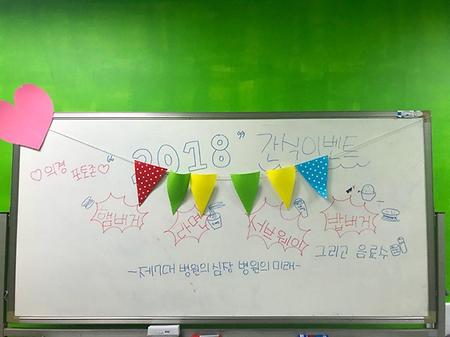 "2018" 간식이벤트
♡의경 포토존♡
햄버거 라면 서브웨이 밥버거
그리고 음료수
~제17대 병원의 심장 병원의 미래~